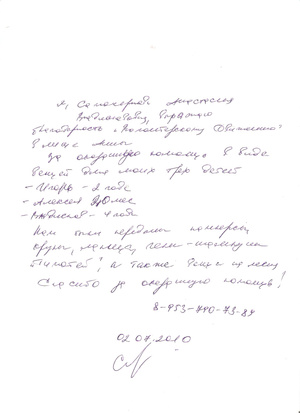 Я, Самохе Анастасия
Владиславовна, выражаю
благодарность „Волонтерскому Движению"
в лице Анны
За оказанную помощь в виде
вещей для моих трёх детей
- Игорь - 2 года
- Алексей мес
- Владислав - 4 года
Нам были переданы
крупы, шампуни
а также вещи
Спасибо за оказанную помощь!
8-953-790-73-89
02.07.2010